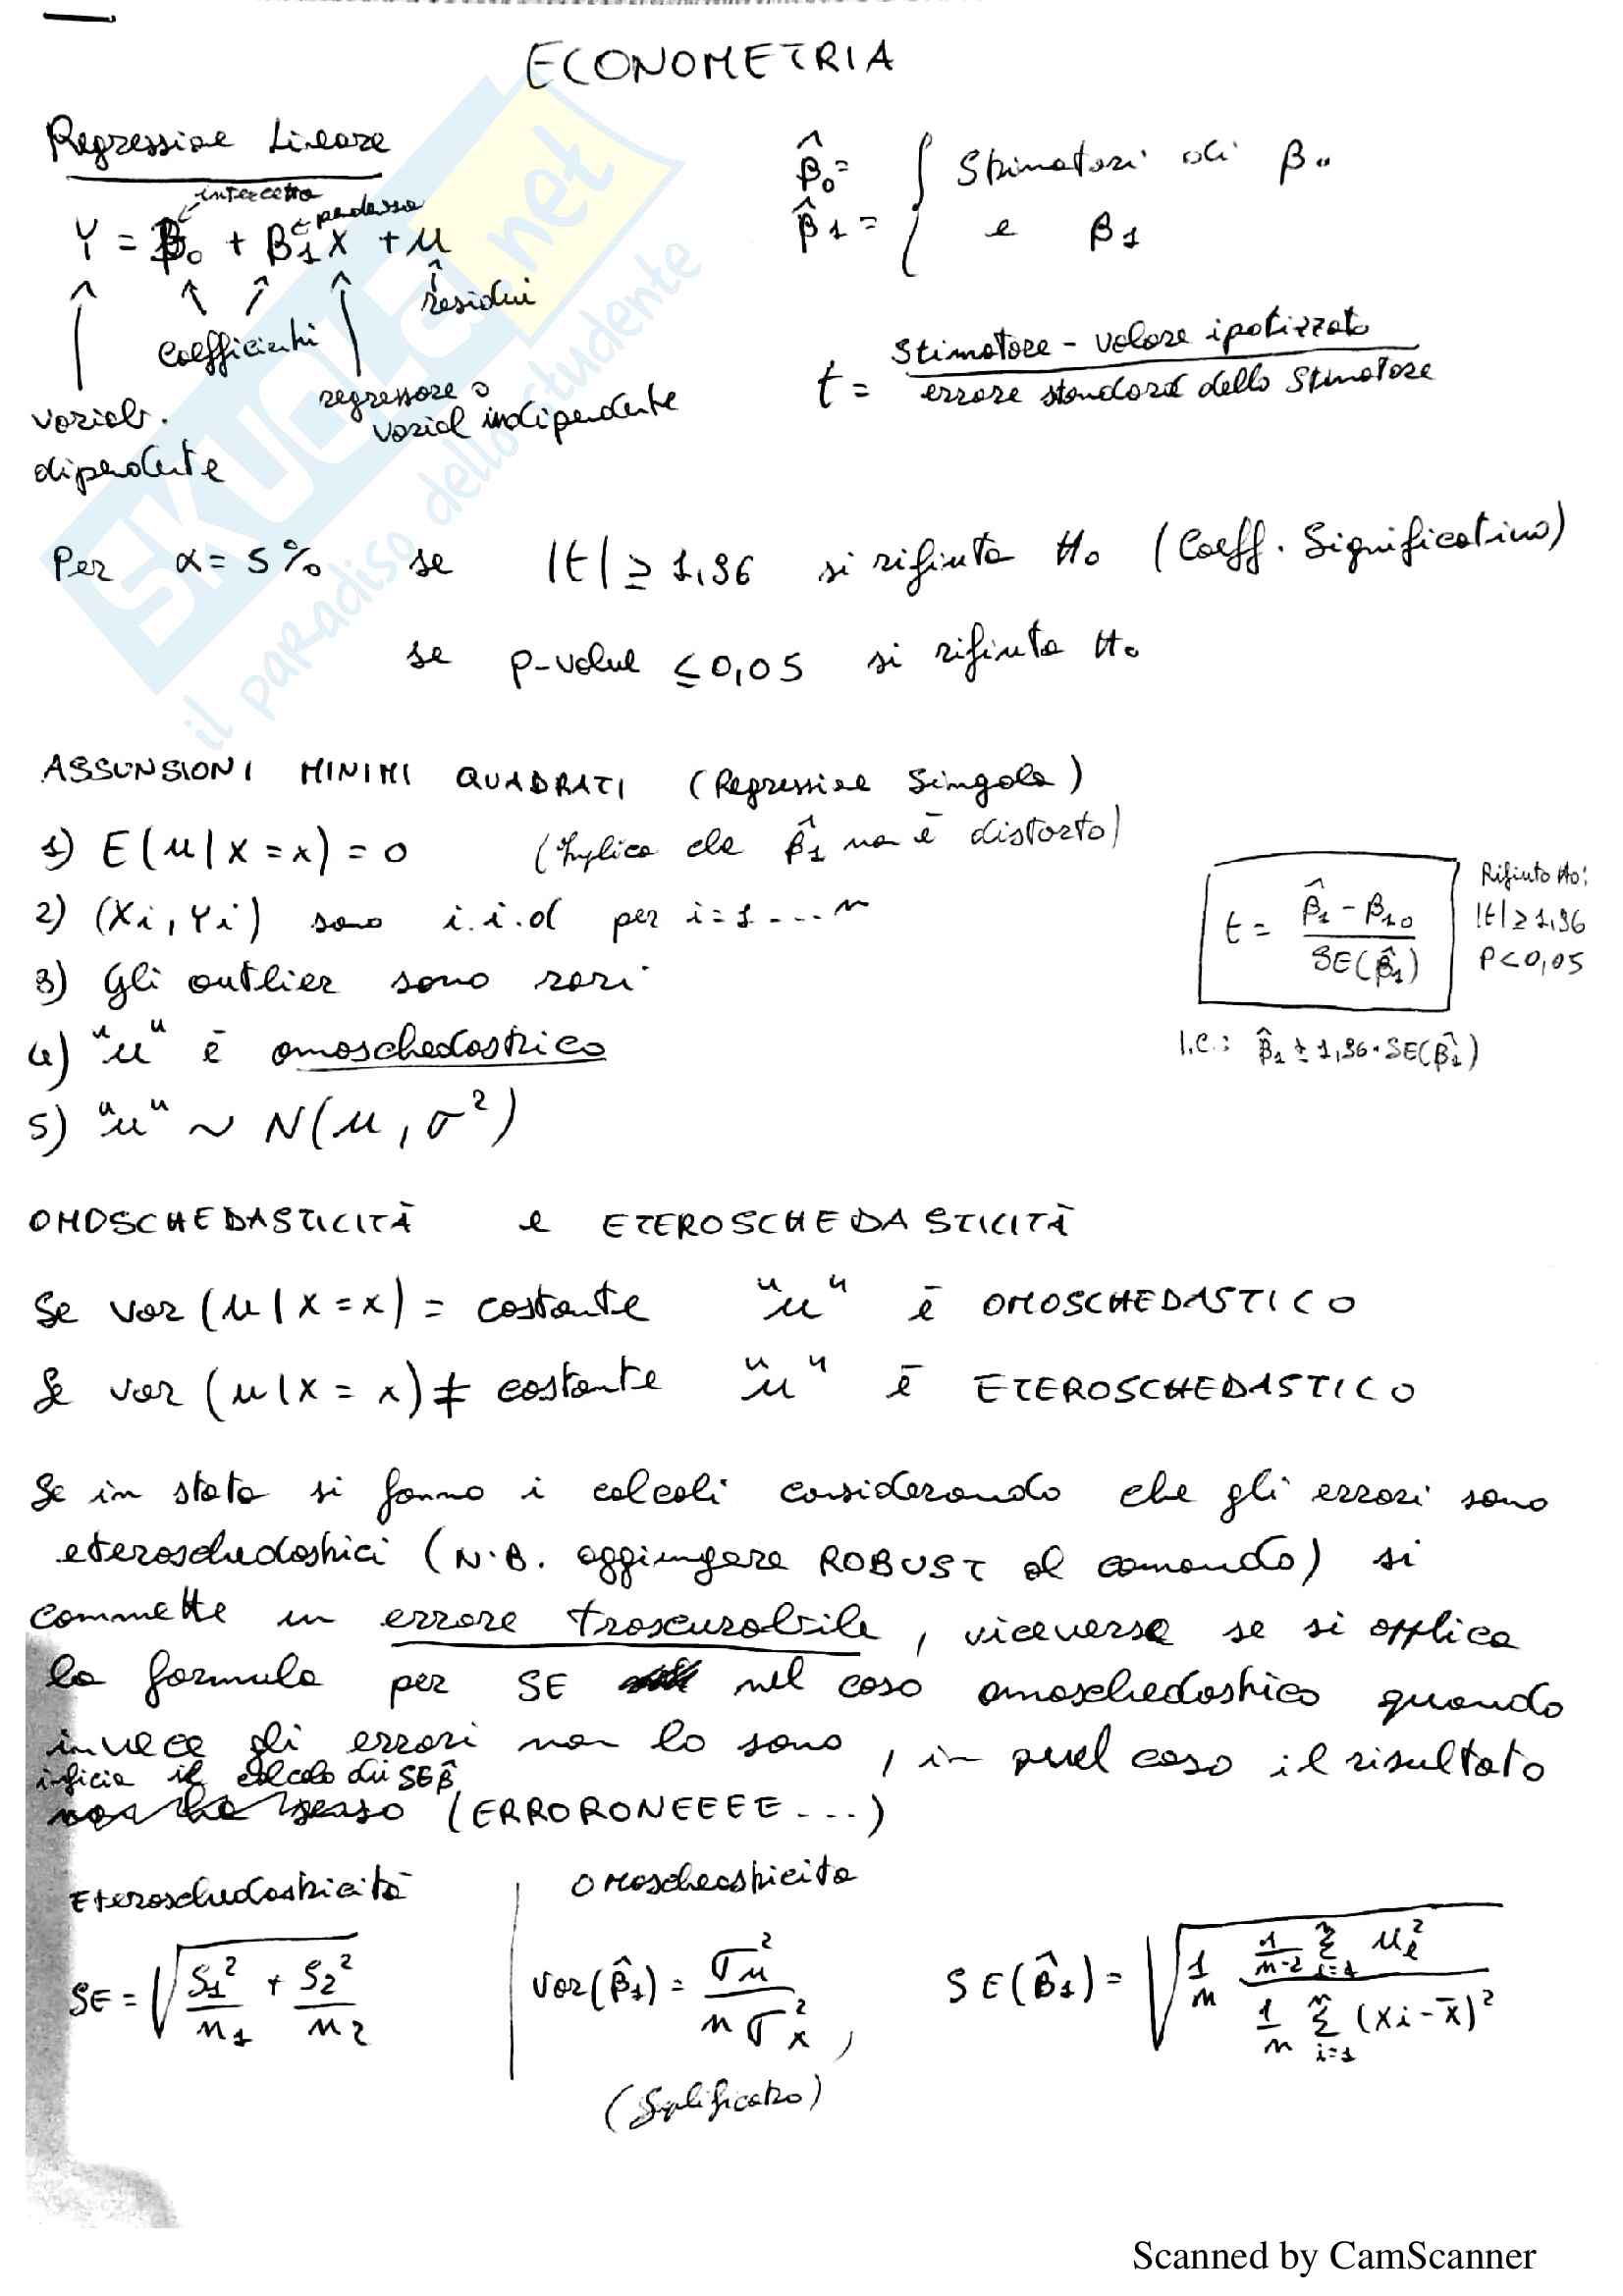 ECONOMETRIA
Regressione Lineare
intercetta
pendenza
Y = β₀ + β₁X + u
residui
coefficienti
regressore o
variab indipendente
variab.
dipendente
β̂₀ = { Stimatori di β₀
β̂₁ = e β₁
t = (Stimatore - valore ipotizzato) / (errore standard dello Stimatore)
Per α = 5% se |t| ≥ 1,96 si rifiuta H₀ (Coeff. Significativo)
se p-value ≤ 0,05 si rifiuta H₀
ASSUNSIONI MINIMI QUADRATI (Regressione Singola)
1) E(u|X=x) = 0 (Implica che β̂₁ non è distorto)
2) (Xi, Yi) sono i.i.d per i=1 ... n
3) Gli outlier sono rari
4) "u" è omoschedastico
5) "u" ~ N(μ, σ²)
t = (β̂₁ - β₁,₀) / SE(β̂₁)
Rifiuto H₀:
|t| ≥ 1,96
P < 0,05
I.C.: β̂₁ ± 1,96 · SE(β̂₁)
OMOSCHEDASTICITÀ e ETEROSCHEDASTICITÀ
Se var (u|X=x) = costante "u" è OMOSCHEDASTICO
Se var (u|X=x) ≠ costante "u" è ETEROSCHEDASTICO
Se in stata si fanno i calcoli considerando che gli errori sono
eteroschedastici (N.B. aggiungere ROBUST al comando) si
commette un errore trascurabile, viceversa se si applica
la formula per SE nel caso omoschedastico quando
invece gli errori non lo sono, in quel caso il risultato
inficia il calcolo di SEβ̂
non ha senso (ERRORONEEEE ...)
Eteroschedasticità
SE = √(S₁²/n₁ + S₂²/n₂)
Omoschedasticita
var(β̂₁) = σu² / nσx²,
(Semplificato)
SE(β̂₁) = √(1/n · (1/(n-2) Σᵢ₌₁ⁿ uᵢ²) / (1/n Σᵢ₌₁ⁿ (Xi - X̄)²))
SKUOLA.net
il paradiso dello studente
Scanned by CamScanner